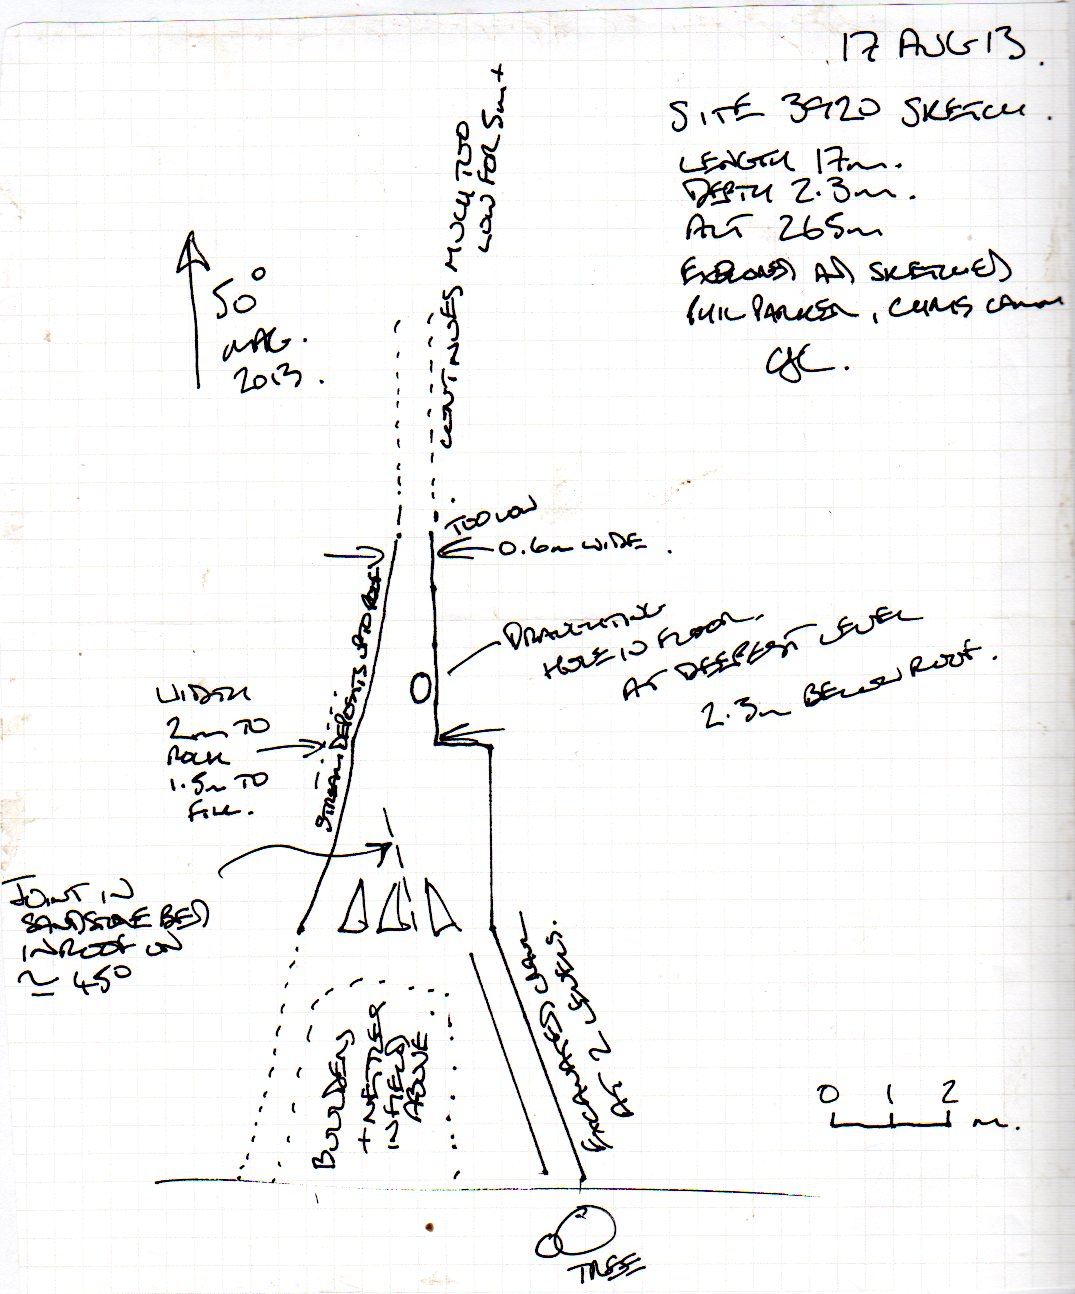 17 AUG 13.
SITE 3920 SKETCH.
LENGTH 17m.
DEPTH 2.3m.
ALT 265m
EXPLORED AND SKETCHED
PHIL PARKER, CHRIS CAMM
50°
MAG.
2013.
CONTINUES MUCH TOO
LOW FOR 5m+
TOO LOW
0.6m WIDE.
DRAUGHTING
HOLE IN FLOOR.
AT DEEPEST LEVEL
2.3m BELOW ROOF.
STREAM DEPOSITS UP TO ROOF
WIDTH
2m TO
ROCK
1.5m TO
FILL.
JOINT IN
SANDSTONE BED
IN ROOF ON
≃ 45°
BOULDERS
+ NETTLES
IN FIELD
ABOVE
EXCAVATED CRAWL
AT 2 LEVELS.
0 1 2
m.
TREE